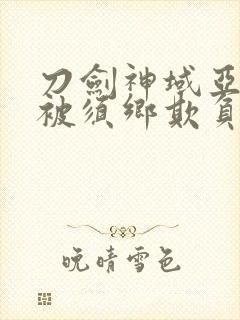 刀劍神域亞
被須鄉欺負
晚晴雪色